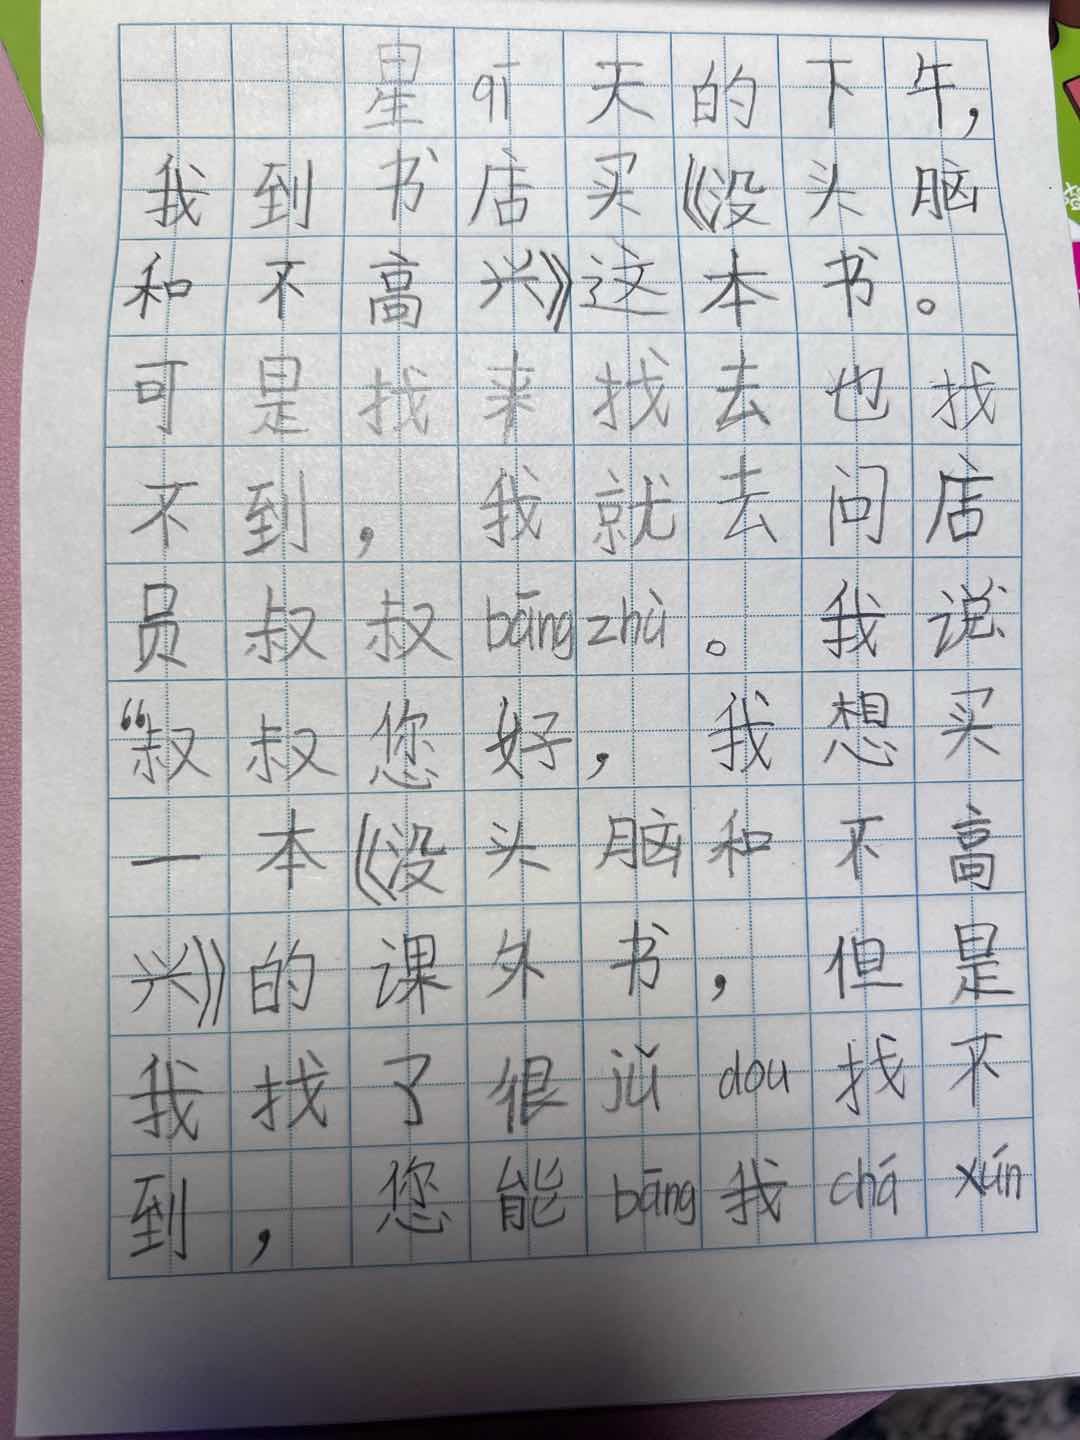 星qī天的下午，
我到书店买《没头脑
和不高兴》这本书。
可是找来找去也找
不到，我就去问店
员叔叔bāngzhù。我说
“叔叔您好，我想买
一本《没头脑和不高
兴》的课外书，但是
我找了很jiǔ dou找不
到，您能bāng我chá xún